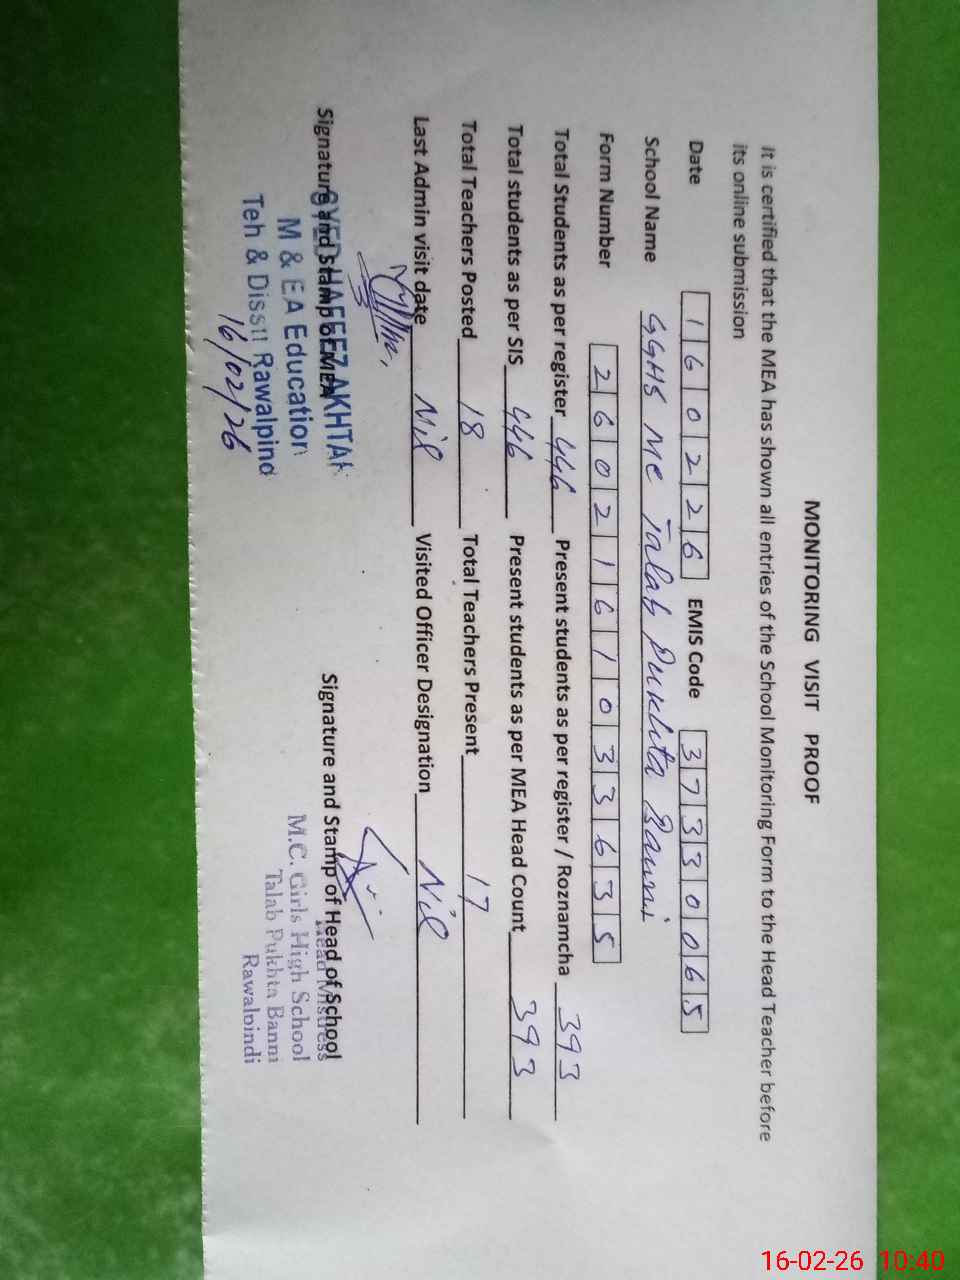 MONITORING VISIT PROOF
It is certified that the MEA has shown all entries of the School Monitoring Form to the Head Teacher before
its online submission
Date 160226 EMIS Code 37330065
School Name GGHS MC Talab Pukhta Banni
Form Number 2602161033635
Total Students as per register 446 Present students as per register / Roznamcha 393
Total students as per SIS 446 Present students as per MEA Head Count 393
Total Teachers Posted 18 Total Teachers Present 17
Last Admin visit date Nil Visited Officer Designation Nil
Signature and Stamp of MEA Signature and Stamp of Head of School
SYED HAFEEZ AKHTAR
M & EA Education
Teh & Disstt Rawalpind
16/02/26
Head Mistress
M.C. Girls High School
Talab Pukhta Banni
Rawalpindi
16-02-26 10:40